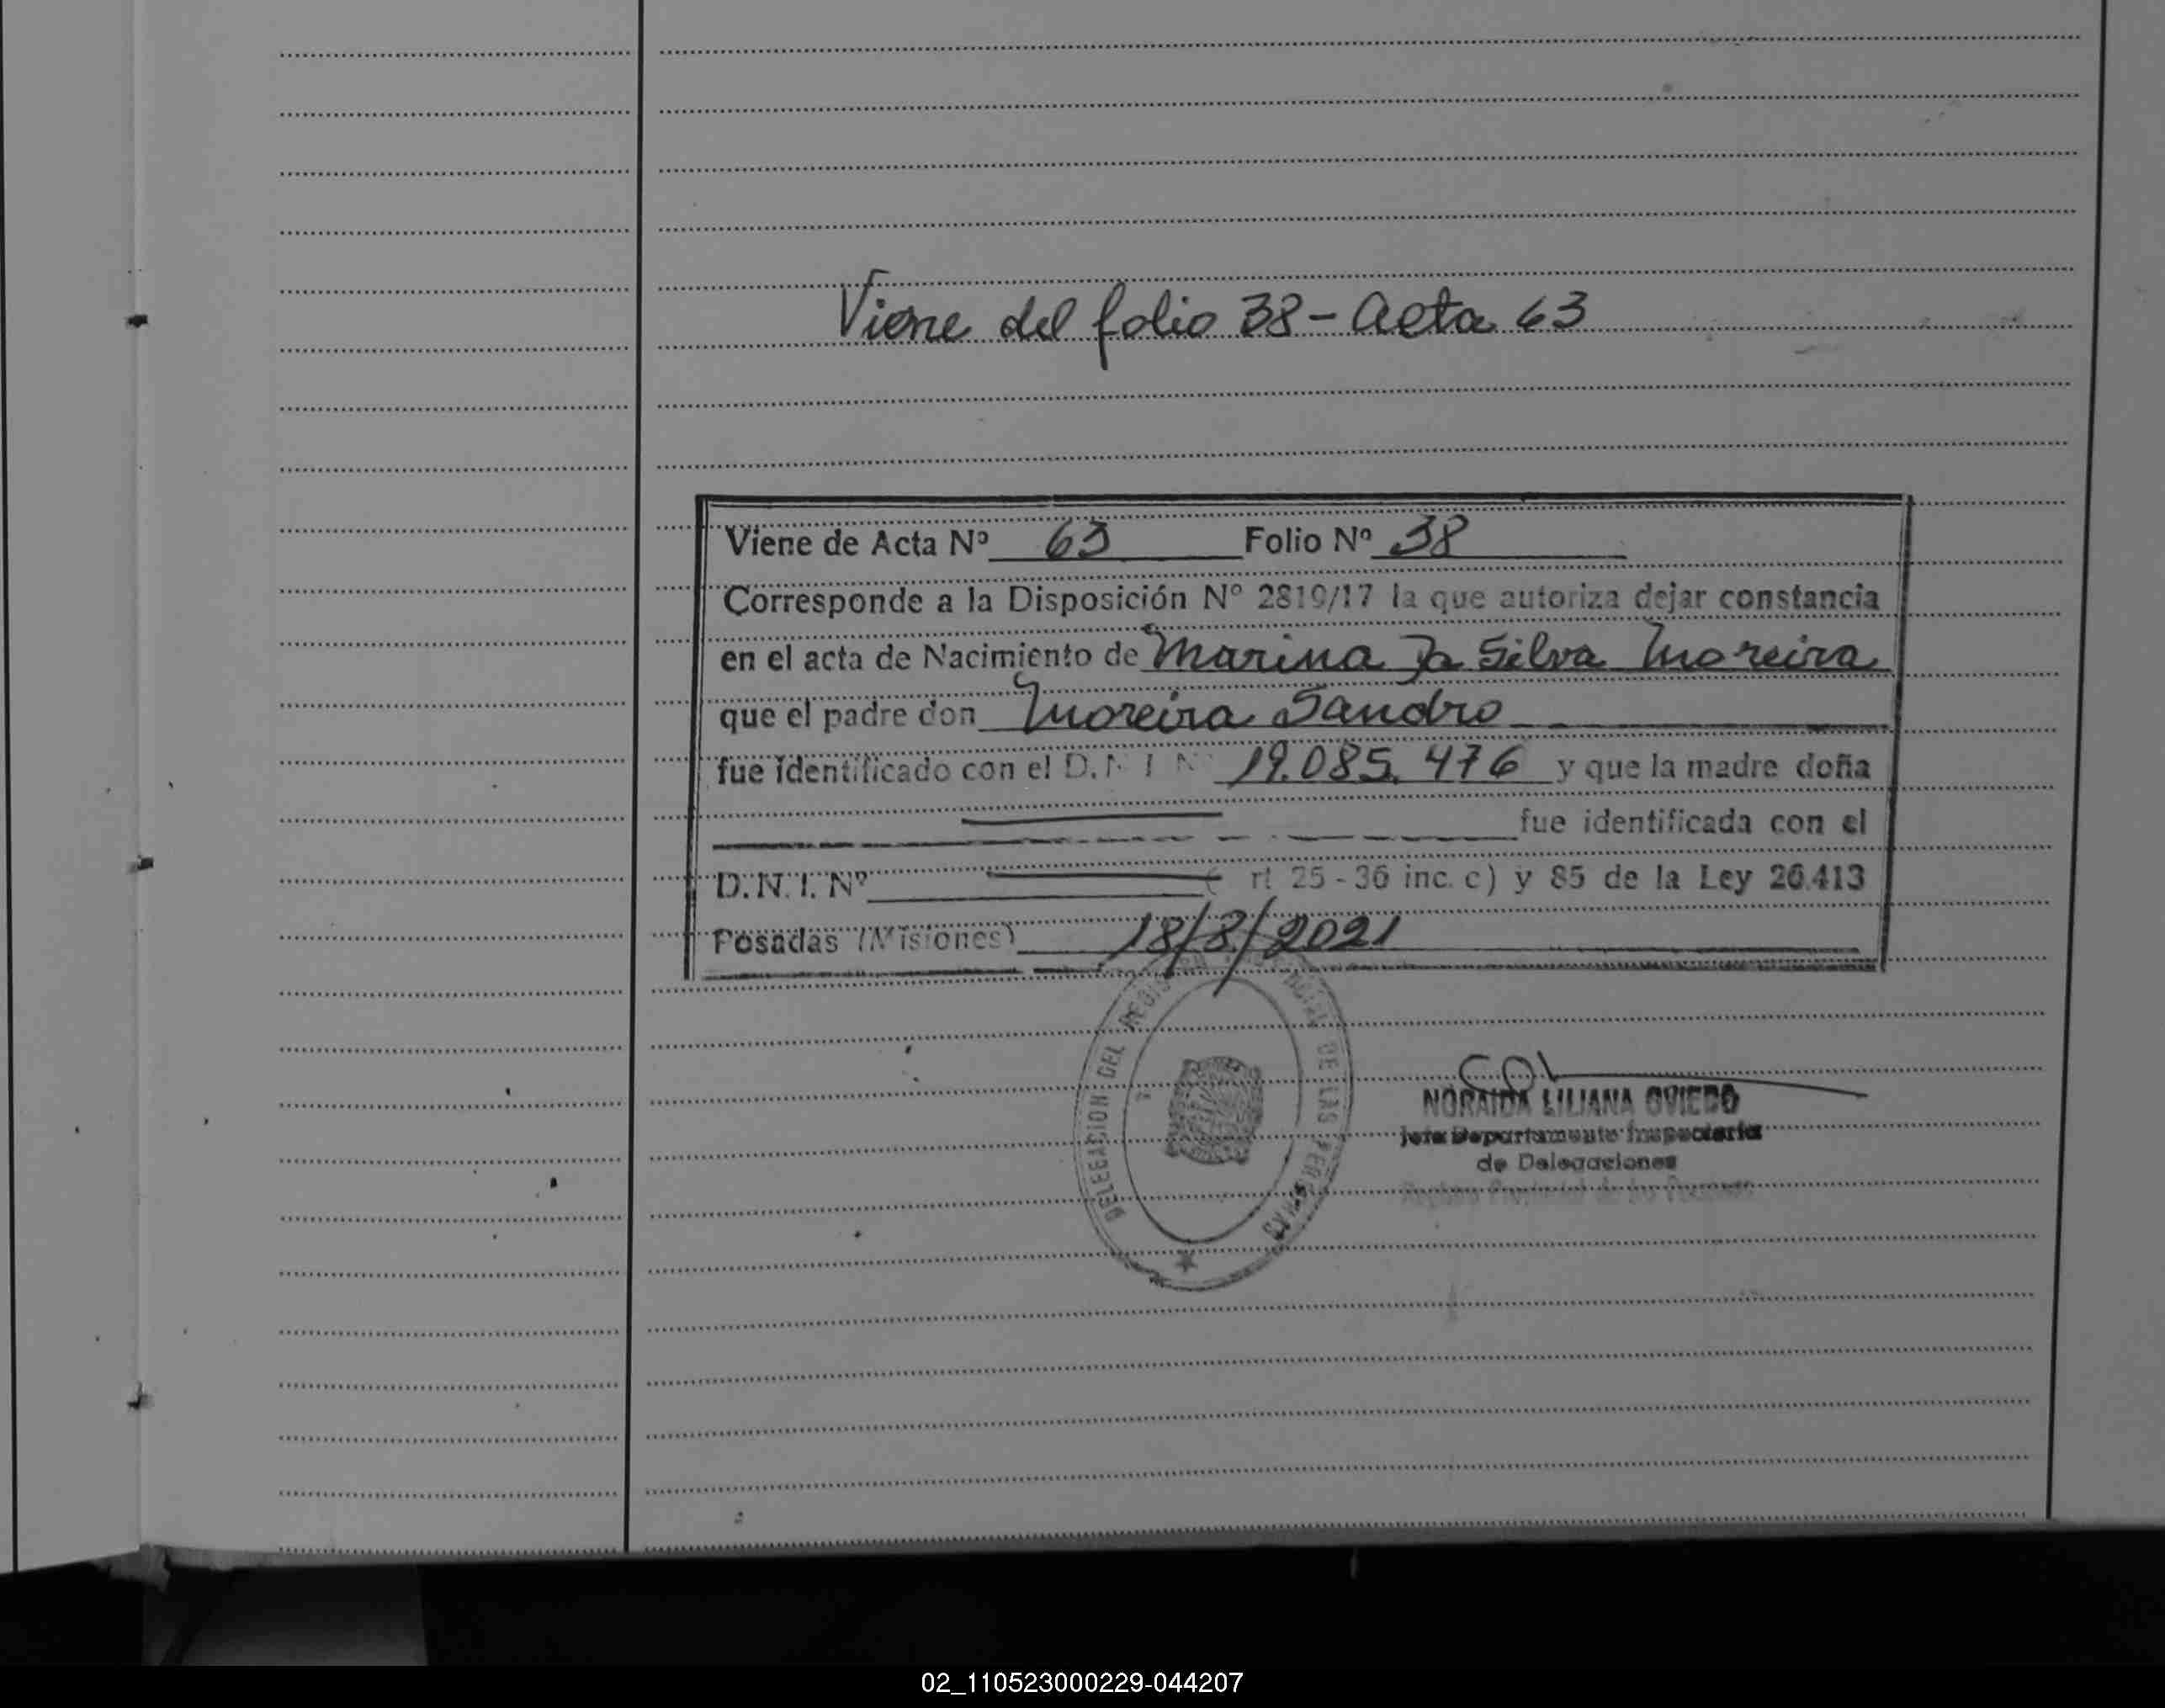 Viene del folio 38 - Acta 63
Viene de Acta Nº 63 Folio Nº 38
Corresponde a la Disposición Nº 2819/17 la que autoriza dejar constancia
en el acta de Nacimiento de Marina Da Silva Moreira
que el padre don Moreira Sandro
fue identificado con el D.N.I. Nº 19.085.476 y que la madre doña
fue identificada con el
D.N.I. Nº ( rt 25 - 36 inc. c) y 85 de la Ley 26.413
Posadas (Misiones) 18/8/2021
DELEGACION DEL REGISTRO DE LAS PERSONAS
NORAIDA LILIANA OVIEDO
Jefa Departamento Inspectoria
de Delegaciones
Registro Provincial de las Personas
02_110523000229-044207